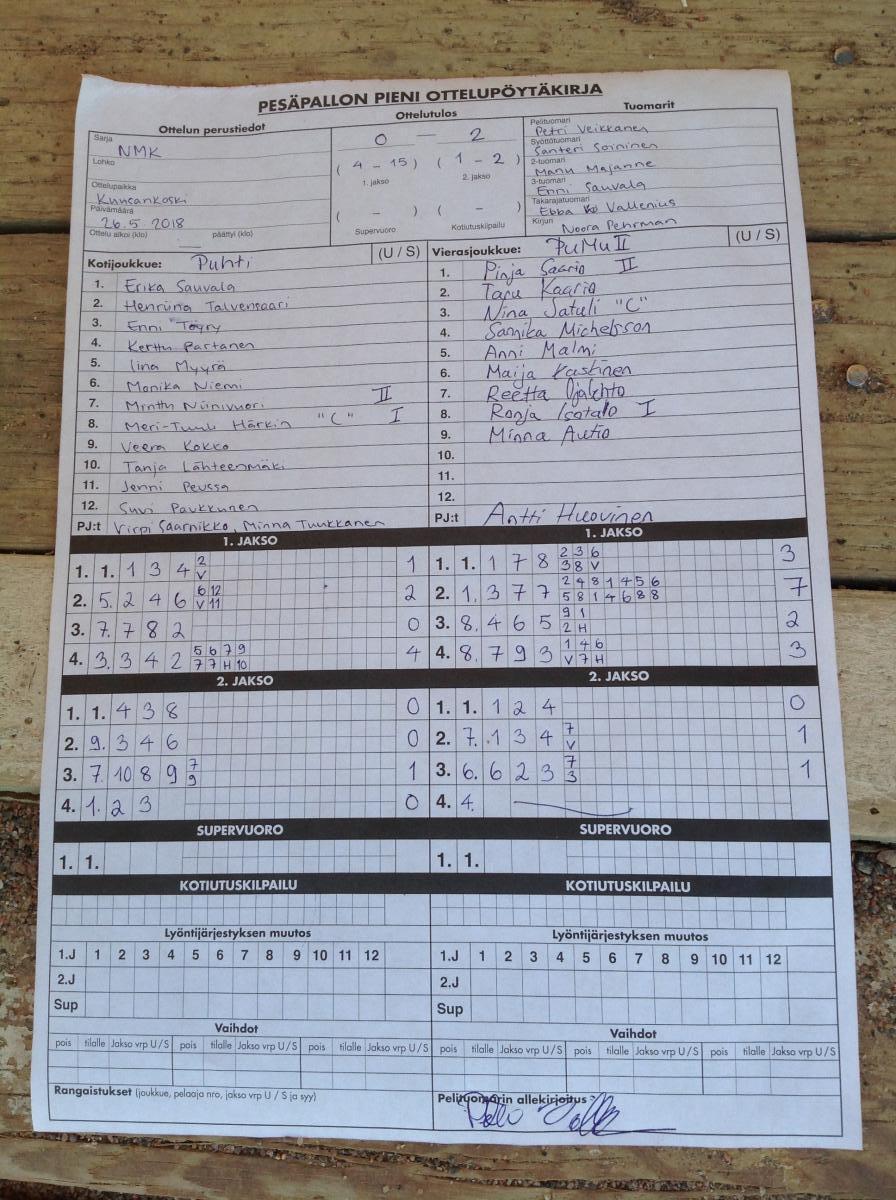 PESÄPALLON PIENI OTTELUPÖYTÄKIRJA
Ottelun perustiedot
Sarja
NMK
Lohko
Ottelupaikka
Kuusankoski
Päivämäärä
26.5 2018
Ottelu alkoi (klo) päättyi (klo)
Ottelutulos
0 — 2
( 4 - 15 ) ( 1 - 2 )
1. jakso 2. jakso
( - ) ( - )
Supervuoro Kotiutuskilpailu
Tuomarit
Pelituomari
Petri Veikkanen
Syöttötuomari
Santeri Soininen
2-tuomari
Manu Majanne
3-tuomari
Enni Sauvala
Takarajatuomari
Ebba Vallenius
Kirjuri
Noora Pehrman
Kotijoukkue: Puhti (U / S)
1. Erika Sauvala
2. Henriina Talvensaari
3. Enni Töyry
4. Kerttu Partanen
5. Iina Myyrä
6. Monika Niemi
7. Minttu Niinivuori II
8. Meri-Tuuli Härkin "C" I
9. Veera Kokko
10. Tanja Lähteenmäki
11. Jenni Peussa
12. Suvi Paukkunen
PJ:t Virpi Saarnikko, Minna Tuukkanen
Vierasjoukkue: PuMu II (U / S)
1. Pinja Saario II
2. Taru Kaario
3. Nina Satuli "C"
4. Sannika Michelsson
5. Anni Malmi
6. Maija Kastinen
7. Reetta Ojalehto
8. Ronja Isotalo I
9. Minna Autio
10.
11.
12.
PJ:t Antti Huovinen
1. JAKSO
1. 1. 1 3 4 2 1
V
2. 5. 2 4 6 6 12 2
V 11
3. 7. 7 8 2 0
4. 3. 3 4 2 5 6 7 9 4
7 7 H 10
1. JAKSO
1. 1. 1 7 8 2 3 6 3
3 8 V
2. 1. 3 7 7 2 4 8 1 4 5 6 7
5 8 1 4 6 8 8
3. 8. 4 6 5 9 1 2
2 H
4. 8. 7 9 3 1 4 6 3
V 7 H
2. JAKSO
1. 1. 4 3 8 0
2. 9. 3 4 6 0
3. 7. 10 8 9 7 1
9
4. 1. 2 3 0
2. JAKSO
1. 1. 1 2 4 0
2. 7. 1 3 4 7 1
V
3. 6. 6 2 3 7 1
3
4. 4.
SUPERVUORO
1. 1.
SUPERVUORO
1. 1.
KOTIUTUSKILPAILU
KOTIUTUSKILPAILU
Lyöntijärjestyksen muutos
1.J 1 2 3 4 5 6 7 8 9 10 11 12
2.J
Sup
Lyöntijärjestyksen muutos
1.J 1 2 3 4 5 6 7 8 9 10 11 12
2.J
Sup
Vaihdot
pois tilalle Jakso vrp U / S pois tilalle Jakso vrp U / S pois tilalle Jakso vrp U / S
Vaihdot
pois tilalle Jakso vrp U / S pois tilalle Jakso vrp U / S pois tilalle Jakso vrp U / S
Rangaistukset (joukkue, pelaaja nro, jakso vrp U / S ja syy)
Pelituomarin allekirjoitus: